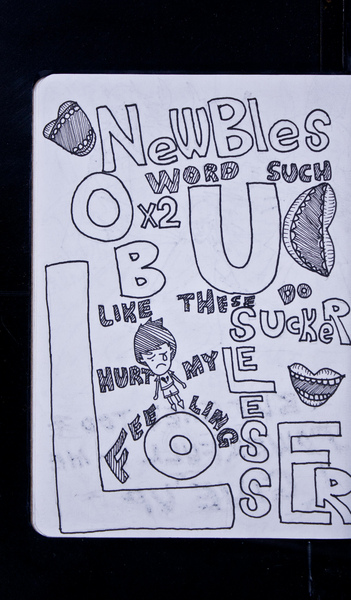 NeWBles
WORD SUCH
O x2
B
U
LIKE THESE DO
SUCKeR
HURT MY
FEELING
USeLeSS
LOSER